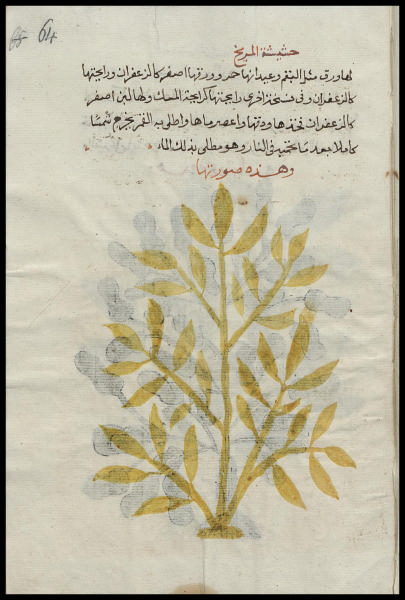 64
حشيشة المريخ
لها ورق مثل البقم وعيدانها حمر وورقها اصفر كالزعفران ورايحتها
كالزعفران وفى نسخة اخرى رايحتها كرايحة المسك ولها لبن اصفر
كالزعفران فخذها ودقها واعصر ماها واطلى به القمر يخرج شمسًا
كاملا بعد ما تحميه فى النار وهو مطلى بذلك الماء
وهذه صورتها